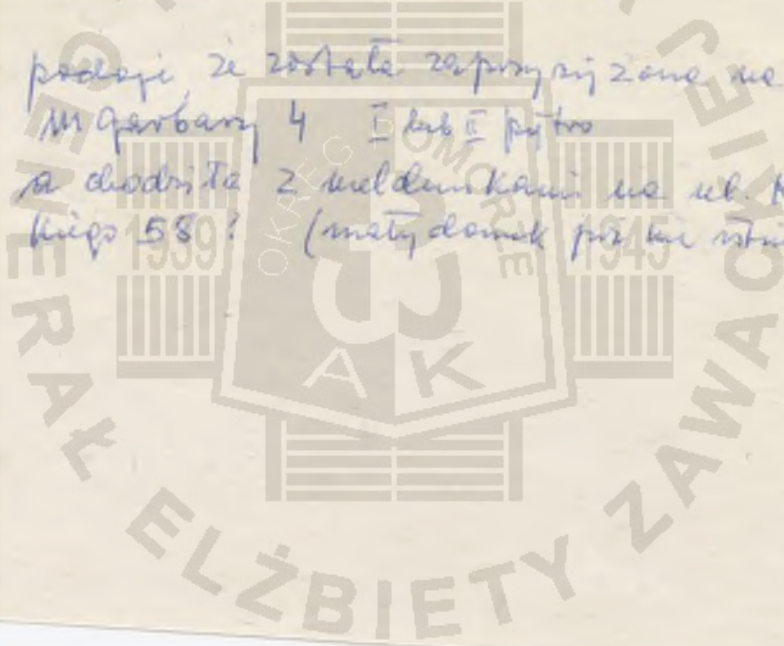 podaje, że została zaprzysiężona na
ul Garbary 4 I lub II piętro
a chodziła z meldunkami na ul.
kiego 58 ? (mały domek już nie
OKRĘG POMORZE
1939 1945
AK
GENERAŁ ELŻBIETY ZAWACKIEJ